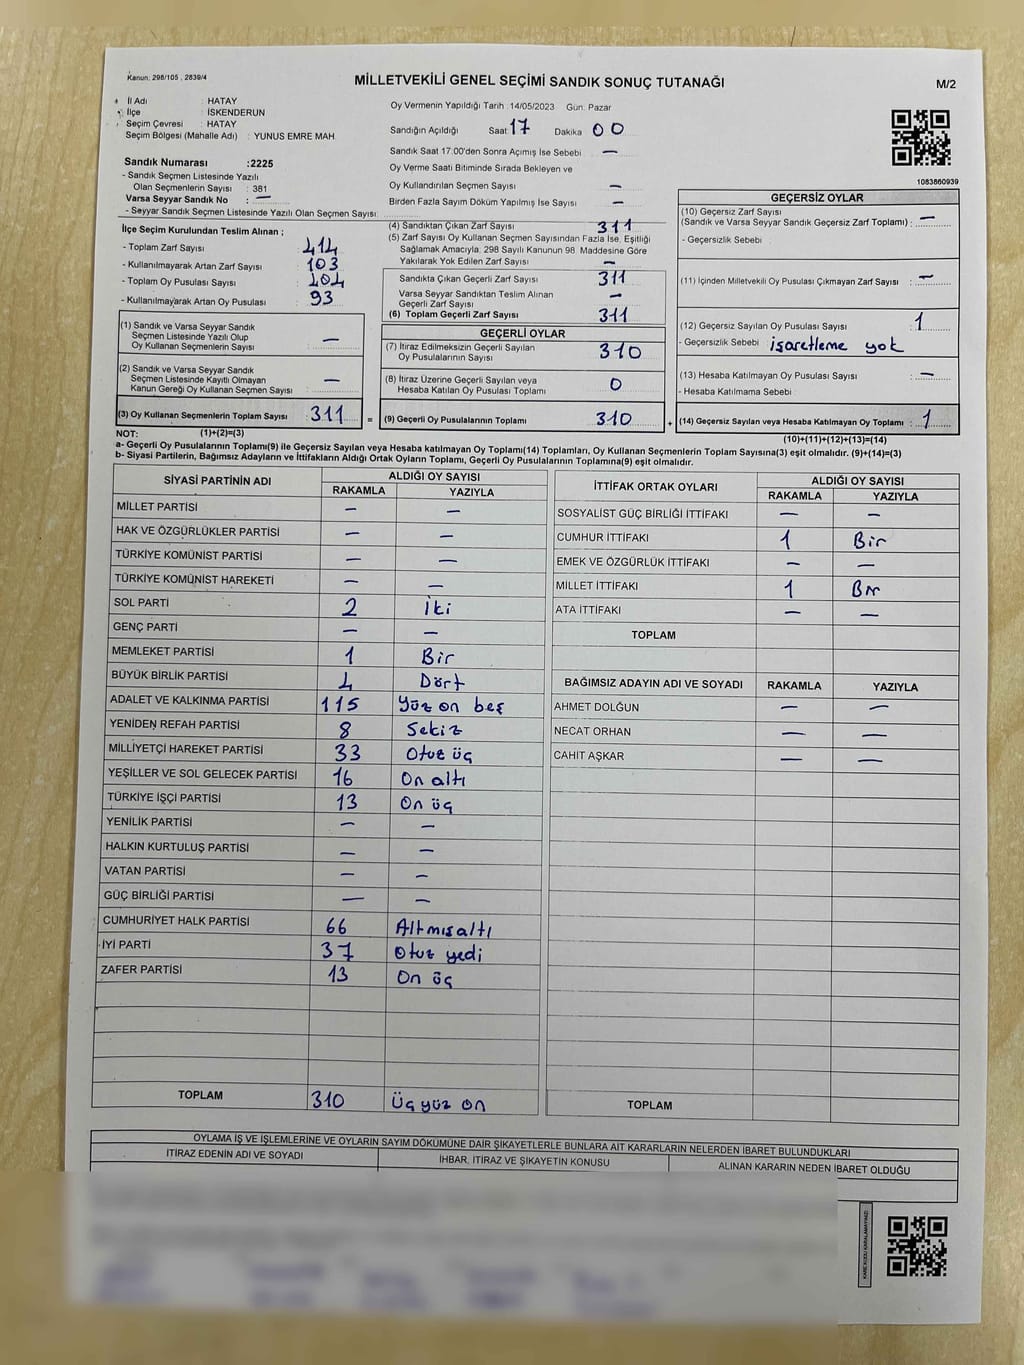 Kanun: 298/105 , 2839/4
MİLLETVEKİLİ GENEL SEÇİMİ SANDIK SONUÇ TUTANAĞI
M/2
İl Adı : HATAY
İlçe : İSKENDERUN
Seçim Çevresi : HATAY
Seçim Bölgesi (Mahalle Adı) : YUNUS EMRE MAH.
Oy Vermenin Yapıldığı Tarih : 14/05/2023 Gün: Pazar
Sandığın Açıldığı Saat 17 Dakika 00
Sandık Saat 17.00'den Sonra Açımış İse Sebebi —
Oy Verme Saati Bitiminde Sırada Bekleyen ve
Oy Kullandırılan Seçmen Sayısı —
Birden Fazla Sayım Döküm Yapılmış İse Sayısı —
Sandık Numarası :2225
- Sandık Seçmen Listesinde Yazılı
Olan Seçmenlerin Sayısı : 381
Varsa Seyyar Sandık No : —
- Seyyar Sandık Seçmen Listesinde Yazılı Olan Seçmen Sayısı:
1083860939
İlçe Seçim Kurulundan Teslim Alınan ;
- Toplam Zarf Sayısı : 414
- Kullanılmayarak Artan Zarf Sayısı : 103
- Toplam Oy Pusulası Sayısı : 404
- Kullanılmayarak Artan Oy Pusulası : 93
(1) Sandık ve Varsa Seyyar Sandık
Seçmen Listesinde Yazılı Olup
Oy Kullanan Seçmenlerin Sayısı : —
(2) Sandık ve Varsa Seyyar Sandık
Seçmen Listesinde Kayıtlı Olmayan
Kanun Gereği Oy Kullanan Seçmen Sayısı : —
(3) Oy Kullanan Seçmenlerin Toplam Sayısı : 311 =
(1)+(2)=(3)
(4) Sandıktan Çıkan Zarf Sayısı 311
(5) Zarf Sayısı Oy Kullanan Seçmen Sayısından Fazla İse, Eşitliği
Sağlamak Amacıyla, 298 Sayılı Kanunun 98. Maddesine Göre
Yakılarak Yok Edilen Zarf Sayısı —
Sandıkta Çıkan Geçerli Zarf Sayısı 311
Varsa Seyyar Sandıktan Teslim Alınan
Geçerli Zarf Sayısı —
(6) Toplam Geçerli Zarf Sayısı 311
GEÇERLİ OYLAR
(7) İtiraz Edilmeksizin Geçerli Sayılan
Oy Pusulalarının Sayısı 310
(8) İtiraz Üzerine Geçerli Sayılan veya
Hesaba Katılan Oy Pusulası Toplamı 0
(9) Geçerli Oy Pusulalarının Toplamı 310 +
GEÇERSİZ OYLAR
(10) Geçersiz Zarf Sayısı
(Sandık ve Varsa Seyyar Sandık Geçersiz Zarf Toplamı) : —
- Geçersizlik Sebebi :
(11) İçinden Milletvekili Oy Pusulası Çıkmayan Zarf Sayısı : —
(12) Geçersiz Sayılan Oy Pusulası Sayısı : 1
- Geçersizlik Sebebi : işaretleme yok
(13) Hesaba Katılmayan Oy Pusulası Sayısı : —
- Hesaba Katılmama Sebebi :
(14) Geçersiz Sayılan veya Hesaba Katılmayan Oy Toplamı : 1
(10)+(11)+(12)+(13)=(14)
NOT:
a- Geçerli Oy Pusulalarının Toplamı(9) ile Geçersiz Sayılan veya Hesaba katılmayan Oy Toplamı(14) Toplamları, Oy Kullanan Seçmenlerin Toplam Sayısına(3) eşit olmalıdır. (9)+(14)=(3)
b- Siyasi Partilerin, Bağımsız Adayların ve İttifakların Aldığı Ortak Oyların Toplamı, Geçerli Oy Pusulalarının Toplamına(9) eşit olmalıdır.
SİYASİ PARTİNİN ADI ALDIĞI OY SAYISI
RAKAMLA YAZIYLA
MİLLET PARTİSİ — —
HAK VE ÖZGÜRLÜKLER PARTİSİ — —
TÜRKİYE KOMÜNİST PARTİSİ — —
TÜRKİYE KOMÜNİST HAREKETİ — —
SOL PARTİ 2 İki
GENÇ PARTİ — —
MEMLEKET PARTİSİ 1 Bir
BÜYÜK BİRLİK PARTİSİ 4 Dört
ADALET VE KALKINMA PARTİSİ 115 Yüz on beş
YENİDEN REFAH PARTİSİ 8 Sekiz
MİLLİYETÇİ HAREKET PARTİSİ 33 Otuz üç
YEŞİLLER VE SOL GELECEK PARTİSİ 16 On altı
TÜRKİYE İŞÇİ PARTİSİ 13 On üç
YENİLİK PARTİSİ — —
HALKIN KURTULUŞ PARTİSİ — —
VATAN PARTİSİ — —
GÜÇ BİRLİĞİ PARTİSİ — —
CUMHURİYET HALK PARTİSİ 66 Altmışaltı
İYİ PARTİ 37 Otuz yedi
ZAFER PARTİSİ 13 On üç
TOPLAM 310 Üç yüz on
İTTİFAK ORTAK OYLARI ALDIĞI OY SAYISI
RAKAMLA YAZIYLA
SOSYALİST GÜÇ BİRLİĞİ İTTİFAKI — —
CUMHUR İTTİFAKI 1 Bir
EMEK VE ÖZGÜRLÜK İTTİFAKI — —
MİLLET İTTİFAKI 1 Bir
ATA İTTİFAKI — —
TOPLAM
BAĞIMSIZ ADAYIN ADI VE SOYADI RAKAMLA YAZIYLA
AHMET DOLĞUN — —
NECAT ORHAN — —
CAHİT AŞKAR — —
TOPLAM
OYLAMA İŞ VE İŞLEMLERİNE VE OYLARIN SAYIM DÖKÜMÜNE DAİR ŞİKAYETLERLE BUNLARA AİT KARARLARIN NELERDEN İBARET BULUNDUKLARI
İTİRAZ EDENİN ADI VE SOYADI İHBAR, İTİRAZ VE ŞİKAYETİN KONUSU ALINAN KARARIN NEDEN İBARET OLDUĞU
KAREKODU KARALAMAYINIZ!